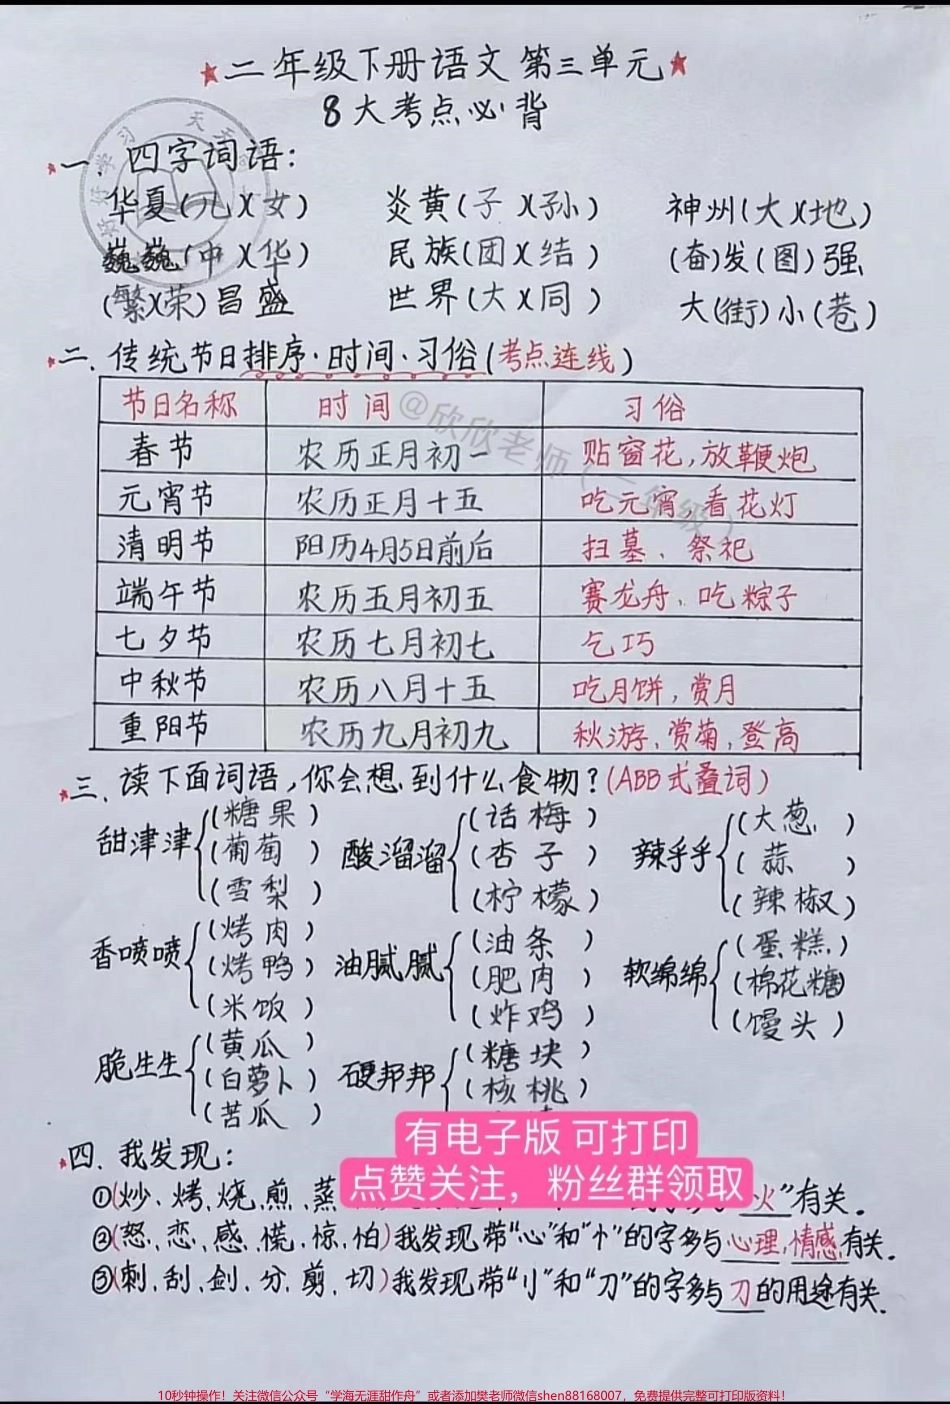 ★二年级下册语文 第三单元★
8大考点必背
★一. 四字词语:
华夏(儿)(女) 炎黄(子)(孙) 神州(大)(地)
巍巍(中)(华) 民族(团)(结) (奋)发(图)强
(繁)(荣)昌盛 世界(大)(同) 大(街)小(巷)
★二. 传统节日排序·时间·习俗(考点连线)
节日名称 时间 习俗
春节 农历正月初一 贴窗花,放鞭炮
元宵节 农历正月十五 吃元宵,看花灯
清明节 阳历4月5日前后 扫墓、祭祀
端午节 农历五月初五 赛龙舟、吃粽子
七夕节 农历七月初七 乞巧
中秋节 农历八月十五 吃月饼,赏月
重阳节 农历九月初九 秋游,赏菊,登高
@欣欣老师(二年级)
★三. 读下面词语,你会想到什么食物?(ABB式叠词)
甜津津 (糖果) (葡萄) (雪梨)
酸溜溜 (话梅) (杏子) (柠檬)
辣乎乎 (大葱) (蒜) (辣椒)
香喷喷 (烤肉) (烤鸭) (米饭)
油腻腻 (油条) (肥肉) (炸鸡)
软绵绵 (蛋糕) (棉花糖) (馒头)
脆生生 (黄瓜) (白萝卜) (苦瓜)
硬邦邦 (糖块) (核桃)
有电子版 可打印
点赞关注，粉丝群领取
★四. 我发现:
①(炒、烤、烧、煎、蒸 火”有关.
②(怒、恋、感、慌、惊、怕)我发现带“心”和“忄”的字多与心理,情感有关.
③(刺、刮、剑、分、剪、切)我发现带“刂”和“刀”的字多与刀的用途有关.
10秒钟操作！关注微信公众号“学海无涯甜作舟”或者添加樊老师微信shen88168007，免费提供完整可打印版资料！